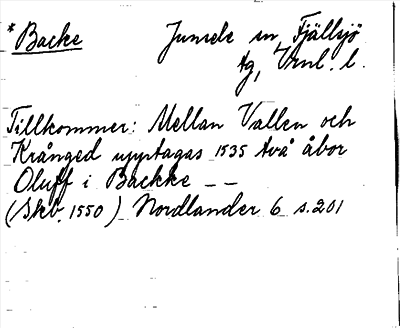 *Backe Junsele sn, Fjällsjö
tg, Vrnl. l.
Tillkommer: Mellan Vallen och
Krånged upptagas 1535 två åbor
Oluff i Backke – –
(Skb. 1550) Nordlander 6 s. 201